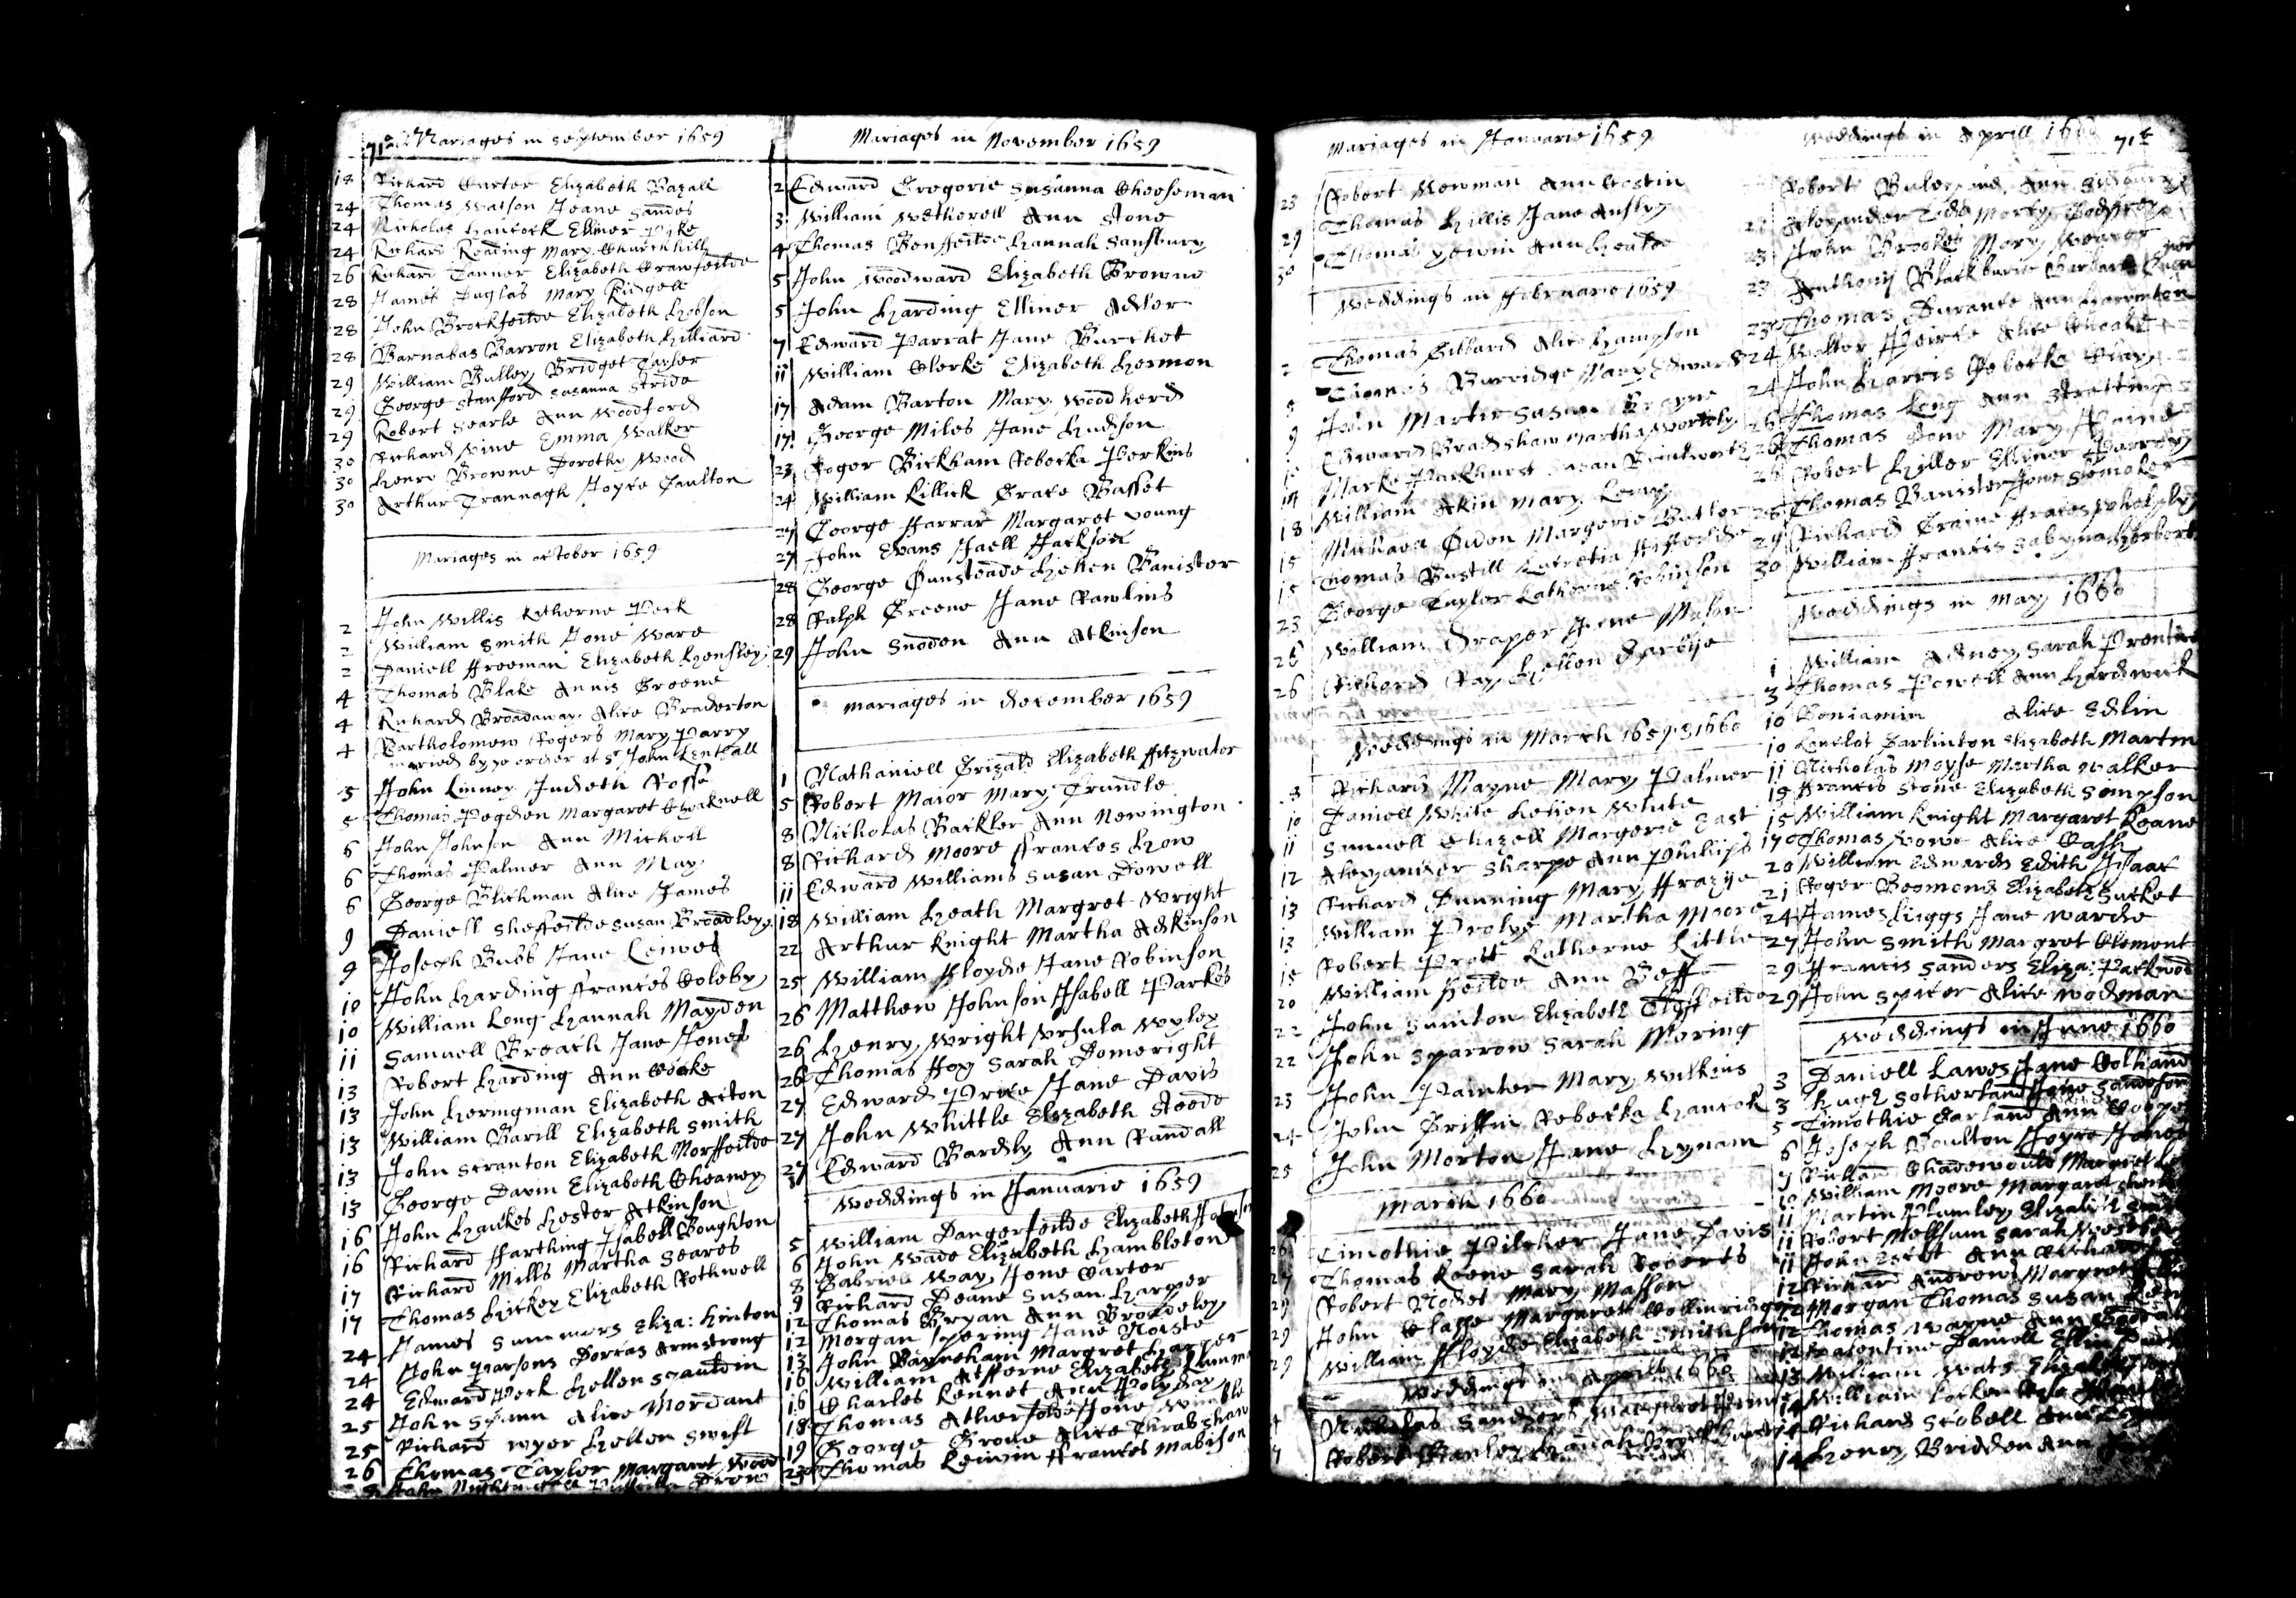 71a Mariages in September 1659
18 Richard Carter Elizabeth Bazall
24 Thomas Watson Jeane Sandes
24 Nicholas Hancock Elliner Pyke
24 Richard Reading Mary Churchhill
26 Richard Tanner Elizabeth Crawfeilde
28 James Duglas Mary Ridgell
28 John Brockfeilde Elizabeth Hobson
28 Barnabas Barron Elizabeth Hilliard
29 William Bulley Bridget Tayler
29 George Stanfford Susanna Stride
29 Robert Searle Ann Woodford
30 Richard Vine Emma Walker
30 Henre Browne Dorothy Wood
30 Arthur Trannagh Joyce Caulton
Mariages in october 1659
2 John Willis Katherne Peck
2 William Smith Jone Ware
2 Daniell ffreeman Elizabeth Hensley
4 Thomas Blake Annis Greene
4 Richard Broadaway Alice Braderton
4 Bartholomew Rogers Mary Parry
maried by ye order of Sr John Lenthall
5 John Linney Judeth Rosse
5 Thomas Pegden Margaret Chaknell
6 John Johnson Ann Michell
6 Thomas Palmer Ann May
6 George Blichman Alice James
9 Daniell Sheffeilde Susan Broadley
9 Joseph Bubb Jane Lewes
10 John Harding ffrances Coleby
10 William Long Hannah Mayden
11 Samuell Breach Jane Jones
13 Robert Harding Ann Cooke
13 John Heringman Elizabeth Acton
13 William Barill Elizabeth Smith
13 John Stranton Elizabeth Morffeilde
13 George Davin Elizabeth Cheaney
16 John Haukes Hester Atkinson
16 Richard ffarthing Isabell Boughton
17 Richard Mills Martha Seares
17 Thomas Hickey Elizabeth Rothwell
24 James Summers Eliza: Hinton
24 John Parsons Dorcas Armstrong
24 Edward Peck Hellen Scauldin
25 John Spann Alice Mordant
25 Richard Wyer Hellen Swift
26 Thomas Taylor Margaret Wood
Mariages in November 1659
2 Edward Gregorie Susanna Cheeseman
3 William Wetherell Ann Stone
4 Thomas Bonffeilde Hannah Sansbury
5 John Woodward Elizabeth Browne
5 John Harding Elliner Adler
7 Edward Parrat Jane Burchet
11 William Clerke Elizabeth Hermon
17 Adam Barton Mary Woodherd
17 George Miles Jane Hudson
23 Roger Bickham Rebecka Perkins
24 William Killick Grace Basset
27 George ffarrar Margaret Young
27 John Evans Jaell Jackson
28 George Gunsteade Hellen Banister
28 Ralph Greene Jane Rawlins
29 John Snoden Ann Atkinson
Mariages in december 1659
1 Nathaniell Grizald Elizabeth ffitzwater
5 Robert Maior Mary Trundle
8 Nicholas Backler Ann Newington
8 Richard Moore ffrances How
11 Edward Williams Susan Dowell
18 William Heath Margret Wright
22 Arthur Knight Martha Adkinson
25 William ffloyde Jane Robinson
26 Matthew Johnson Isabell Parkes
26 Henry Wright Ursula Wyley
26 Thomas ffox Sarah Domeright
27 Edward Price Jane Davis
27 John Whittle Elizabeth Steede
27 Edward Bardly Ann Randall
Weddings in Januarie 1659
5 William Dangerfeilde Elizabeth
6 John Wade Elizabeth Hambleton
8 Gabriell Way Jone Carter
9 Richard Deane Susan Harper
12 Thomas Bryan Ann Broadeley
12 Morgan Spering Jane Noiste
13 John Barneham Margret Harper
16 William Atfferne Elizabeth
16 Charles Kennet Ann Polyday
18 Thomas Atherfolde Jone Wimble
19 George Grove Alice Thrabshaw
23 Thomas Lewin ffrances Mabison
Mariages in Januarie 1659
23 Robert Newman Ann Costin
29 Thomas Hillis Jane Anstey
30 Thomas Yewin Ann Heade
Weddings in ffebruarie 1659
2 Thomas Gibbard Alice Hampton
8 Thomas Burridge Mary Edwards
9 John Martin Susan Grayne
10 Edward Bradshaw Martha Wortely
14 Marke Parkhurst Susan Brintworth
18 William Akin Mary Lemay
15 Michaell Owen Margerie Butler
15 Thomas Bustill Lucretia ffiffeilde
23 George Taylor Katherne Robinson
26 William Draper Jane Mason
26 Richard Ray Hellen Darbye
Weddings in March 1659 & 1660
3 Richard Mayne Mary Palmer
10 Daniell White Hellen White
11 Samuell Chizell Margerie East
12 Alexander Sharpe Ann Phillips
13 Richard Dunning Mary ffrazye
13 William Prolye Martha Moore
15 Robert Prott Katherne Little
20 William Feilde Ann Beff
22 John Suinton Elizabeth Clyffeilde
22 John Sparrow Sarah Moring
23 John Painter Mary Wilkins
24 John Griffin Rebecka Hancok
25 John Morton Jane Hynam
March 1660
26 Timothie Pilcher Jane Davis
27 Thomas Keene Sarah Roberts
29 Robert Nodes Mary Masson
29 John Classe Margaret Collinridge
29 William ffloyde Elizabeth Smithson
Weddings in Aprill 1660
4 Nicholas Sanders Margret
Robert Hanah
Weddings in Aprill 1660 71b
Robert Ann
Alexander Tods Godffrey
23 John Brookes Mary Weaver
23 Anthony Blackburne Barbara
23 Thomas Durante Ann Harrinton
24 Walter Peirce Alice Choake
24 John Harris Rebecka Clay
26 Thomas Long Ann Stretting
26 Thomas Done Mary Paine
26 Robert Hiller Elliner Perrey
26 Thomas Banister Jone Semoker
29 Richard Traine ffraces Whelply
30 William ffrancis Sabyna Herbert
Weddings in May 1660
1 William Adney Sarah Prentice
3 Thomas Powell Ann Hardwick
10 Beniamin Alice Edlin
10 Lancelot Carlinton Elizabeth Martin
11 Nicholas Moyse Martha Walker
15 ffrancis Stone Elizabeth Simpson
15 William Knight Margaret Keane
17 Thomas Vowe Alice Cash
20 William Edwards Edith Isaac
21 Roger Beomond Elizabeth Sucket
24 James Higgs Jane Warde
27 John Smith Margret Clement
29 ffrancis Sanders Eliza: Packwod
29 John Spicer Alice Wodman
Weddings in June 1660
3 Daniell Lawes Jane Holland
3 Hugh Sotherland Jane Sanderson
5 Timothie Garland Ann Cooper
6 Joseph Boulton Joyce Jones
9 Richard Margret
10 William Moore Margaret
11 Martin Plumley Elizabeth
11 Robert Mellsum Sarah
11 John Ann
12 Richard Andrews Margret
12 Morgan Thomas Susan
12 Thomas Wayne Ann
12 Valentine Daniell Ellin
13 William Wats Elizabeth
14 William
14 Richard Stobell Ann
14 Henry Bridden Ann